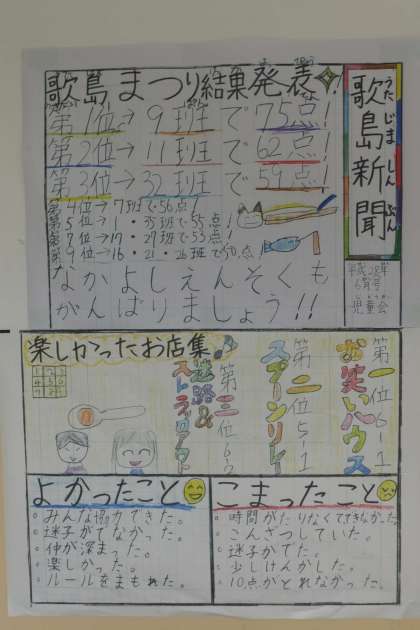 歌島まつり結果発表!
第1位→9班で75点!
第2位→11班で62点!
第3位→32班で59点!
第4位→7班で56点!
第5位→・35班で55点!
第7位→17・29班で53点!
第9位→16・21・26班で50点!
なかよしえんそくも
がんばりましょう!!
歌島新聞
うたじましんぶん
平成28年
6月号
児童会
楽しかったお店集
第一位6-1
お笑いハウス
第二位5-1
スプーンリレー
第三位6-2
迷路&
ストラックアウト
よかったこと
・みんな協力できた。
・迷子がでなかった。
・仲が深まった。
・楽しかった。
・ルールをまもれた。
こまったこと
・時間がたりなくてできなかった。
・こんざつしていた。
・迷子がでた。
・少しけんかした。
・10点かとれなかった。